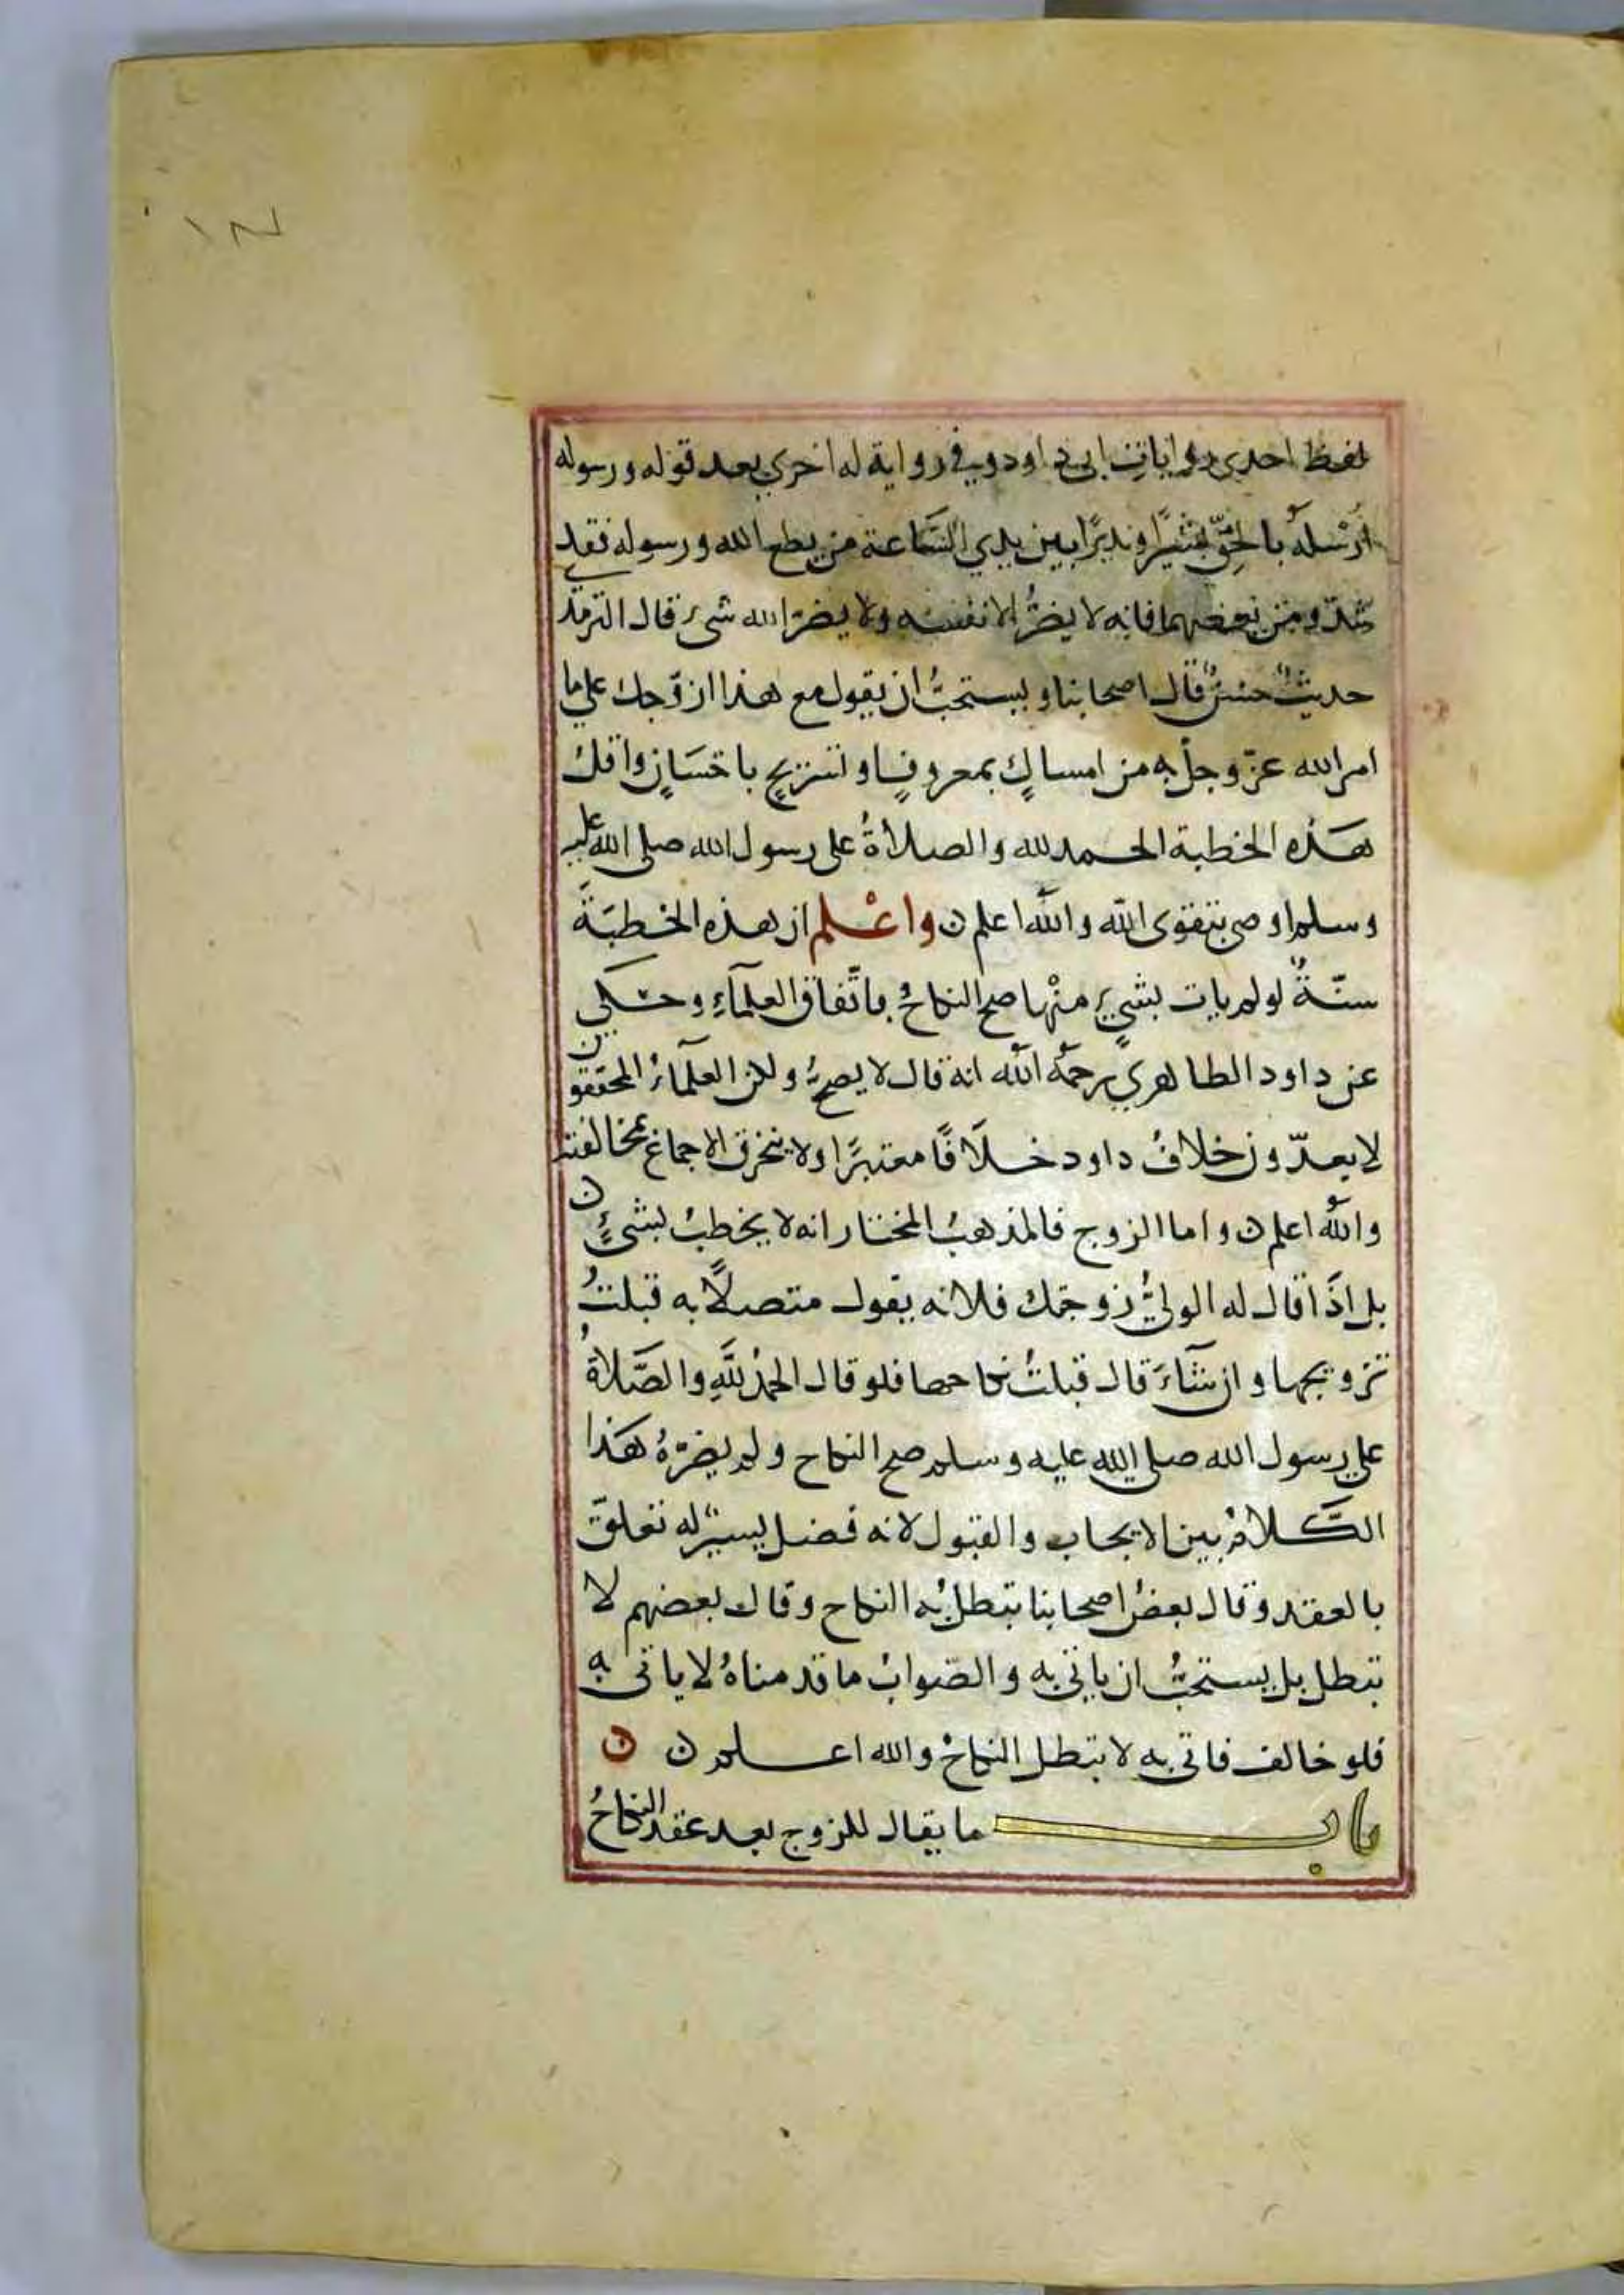 لفظ احدى روايات ابى داود وفي رواية له اخري بعد قوله ورسوله
أرْسله بالحَقّ بشيرًا ونذيرًا بين يدي السَّاعة من يطع الله ورسوله فقد
رشد ومن يعصهما فانه لا يضرُّ الا نفسه ولا يضرّ الله شىء قال الترمذي
حديثٌ حسنٌ قال اصحابنا ويستحبُّ ان يقول مع هذا ازوّجك على ما
امر الله عزّ وجلّ به من امساكٍ بمعروفٍ او تسريحٍ باحسَانٍ واقل
هَذه الخطبة الحمد لله والصلاةُ على رسول الله صلى الله عليه
وسلم اوصى بتقوى الله والله اعلم ن واعْلم ان هذه الخطبَةَ
سنّةٌ لو لم يات بشيءٍ منْها صح النكاحُ باتّفاق العلمآءِ وحكى
عن داود الظاهري رحمَهُ الله انه قال لا يصحُّ ولكن العلمآءُ المحققون
لا يعدّون خلافُ داود خلَافًا معتبرًا ولا ينخرق الاجماع بمخالفته
والله اعلم ن واما الزوج فالمذهبُ المختار انه لا يخطبُ بشىءٍ ن
بل اذَا قال له الوليُّ زوجتك فلانه يقول متصلًا به قبلتُ
تزويجها وان شآءَ قال قبلتُ نكاحها فلو قال الحمدُ للَّهِ والصَّلاةُ
على رسول الله صلى الله عليه وسلم صح النكاح ولم يضرّهُ هَذا
الكَلامُ بين الايجاب والقبول لانه فصل يسيرٌ له تعلّق
بالعقد وقال بعضُ اصحابنا يبطلُ به النكاح وقال بعضهم لا
يبطل بل يستحبُّ ان ياتى به والصّوابُ ما قدمناهُ لا ياتى به
فلو خالف فاتى به لا يبطل النكاحُ والله اعلم ن ن
باب ما يقال للزوج بعد عقد النكاحُ